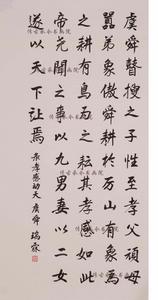 虞舜瞽瞍之子性至孝父頑母
嚚弟象傲舜耕於历山有象為
之耕有鳥為之耘其孝感如此
帝尧聞之事以九男妻以二女
遂以天下讓焉
录孝感动天 虞舜 瑞霖